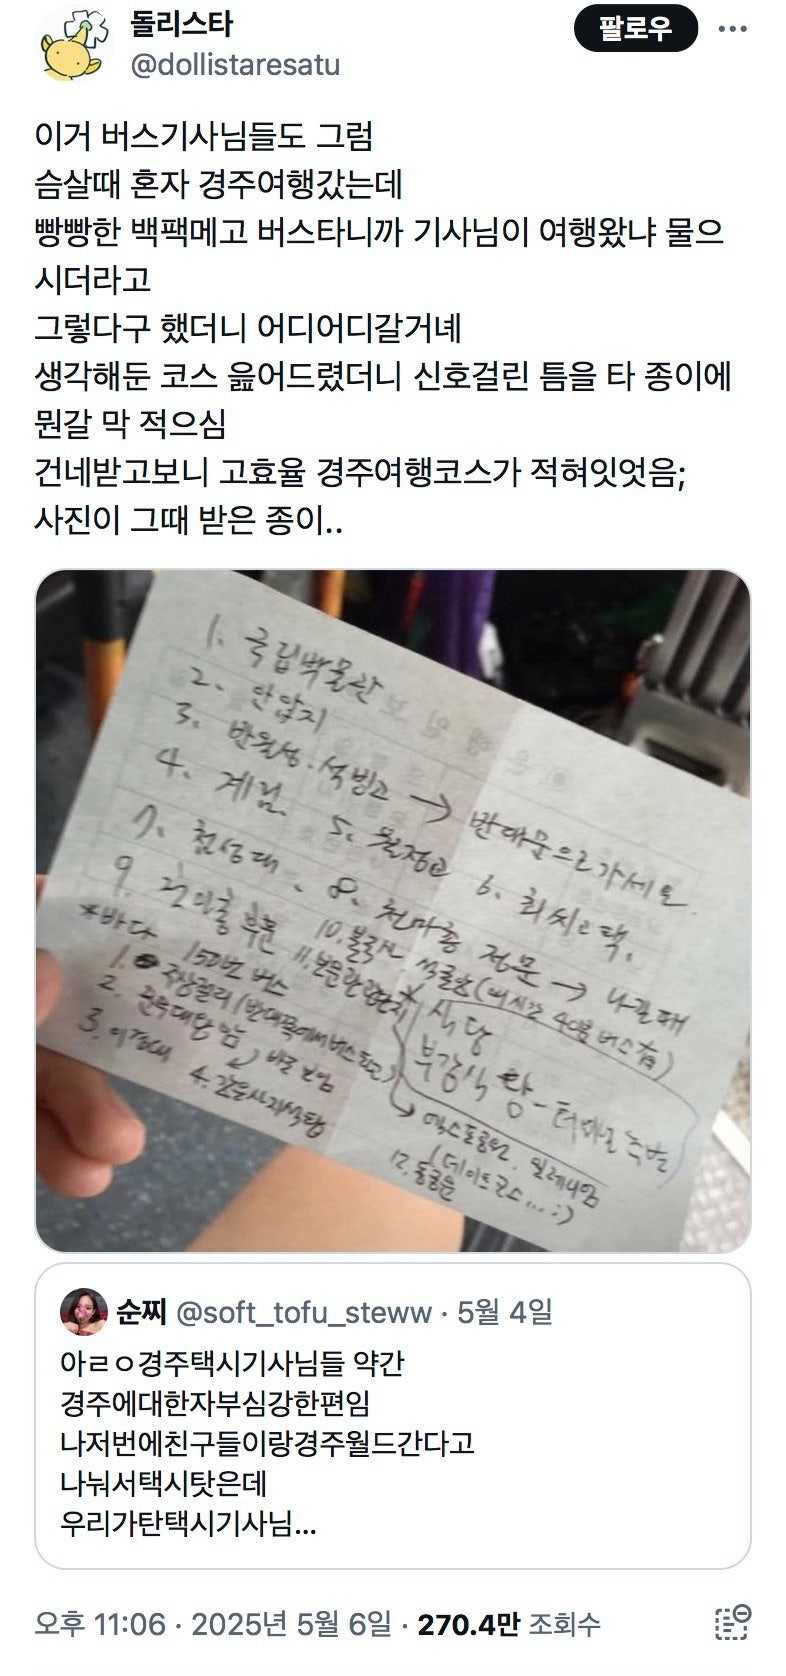 돌리스타
팔로우
@dollistaresatu
이거 버스기사님들도 그럼
슴살때 혼자 경주여행갔는데
빵빵한 백팩메고 버스타니까 기사님이 여행왔냐 물으
시더라고
그렇다구 했더니 어디어디갈거녜
생각해둔 코스 읊어드렸더니 신호걸린 틈을 타 종이에
뭔갈 막 적으심
건네받고보니 고효율 경주여행코스가 적혀잇엇음;
사진이 그때 받은 종이..
1. 국립박물관
2. 안압지
3. 반월성. 석빙고 → 반대문으로가세요.
4. 계림. 5. 월정교 6. 최씨고택.
7. 첨성대. 8. 천마총 정문 → 나갈때
9. 천마총 후문 10. 불국사 석굴암(매시간 40분 버스有)
*바다 150번 버스 11. 보문관광단지
1. 주상절리(반대쪽에서버스타고)
2. 문무대왕 바로 보임
3. 이견대 4. 감은사지석탑
* 식당
부강식당 -
엑스포공원. 밀레니엄
(데이트코스...:)
12. 동궁원
순찌 @soft_tofu_steww · 5월 4일
아ㄹㅇ경주택시기사님들 약간
경주에대한자부심강한편임
나저번에친구들이랑경주월드간다고
나눠서택시탓은데
우리가탄택시기사님...
오후 11:06 · 2025년 5월 6일 · 270.4만 조회수